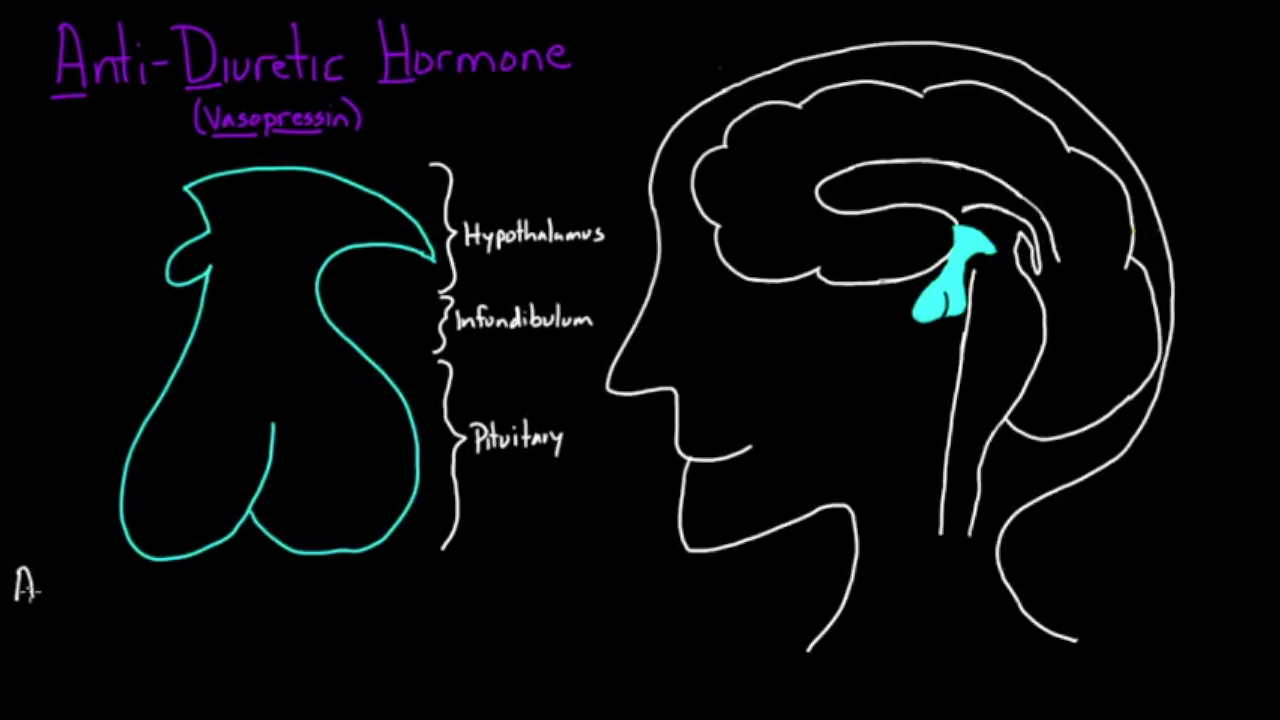 Anti-Diuretic Hormone
(Vasopressin)
Hypothalamus
Infundibulum
Pituitary
A